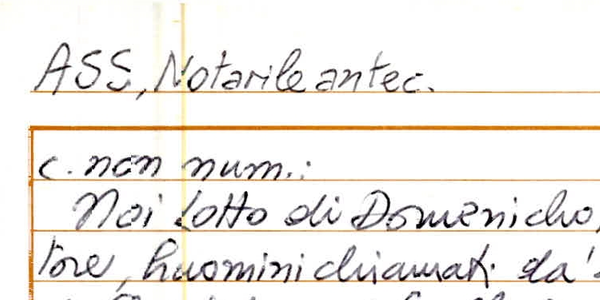 ASS, Notarile antec.
c. non num.:
Noi Lotto di Domenicho,
tore, huomini chiamati da'